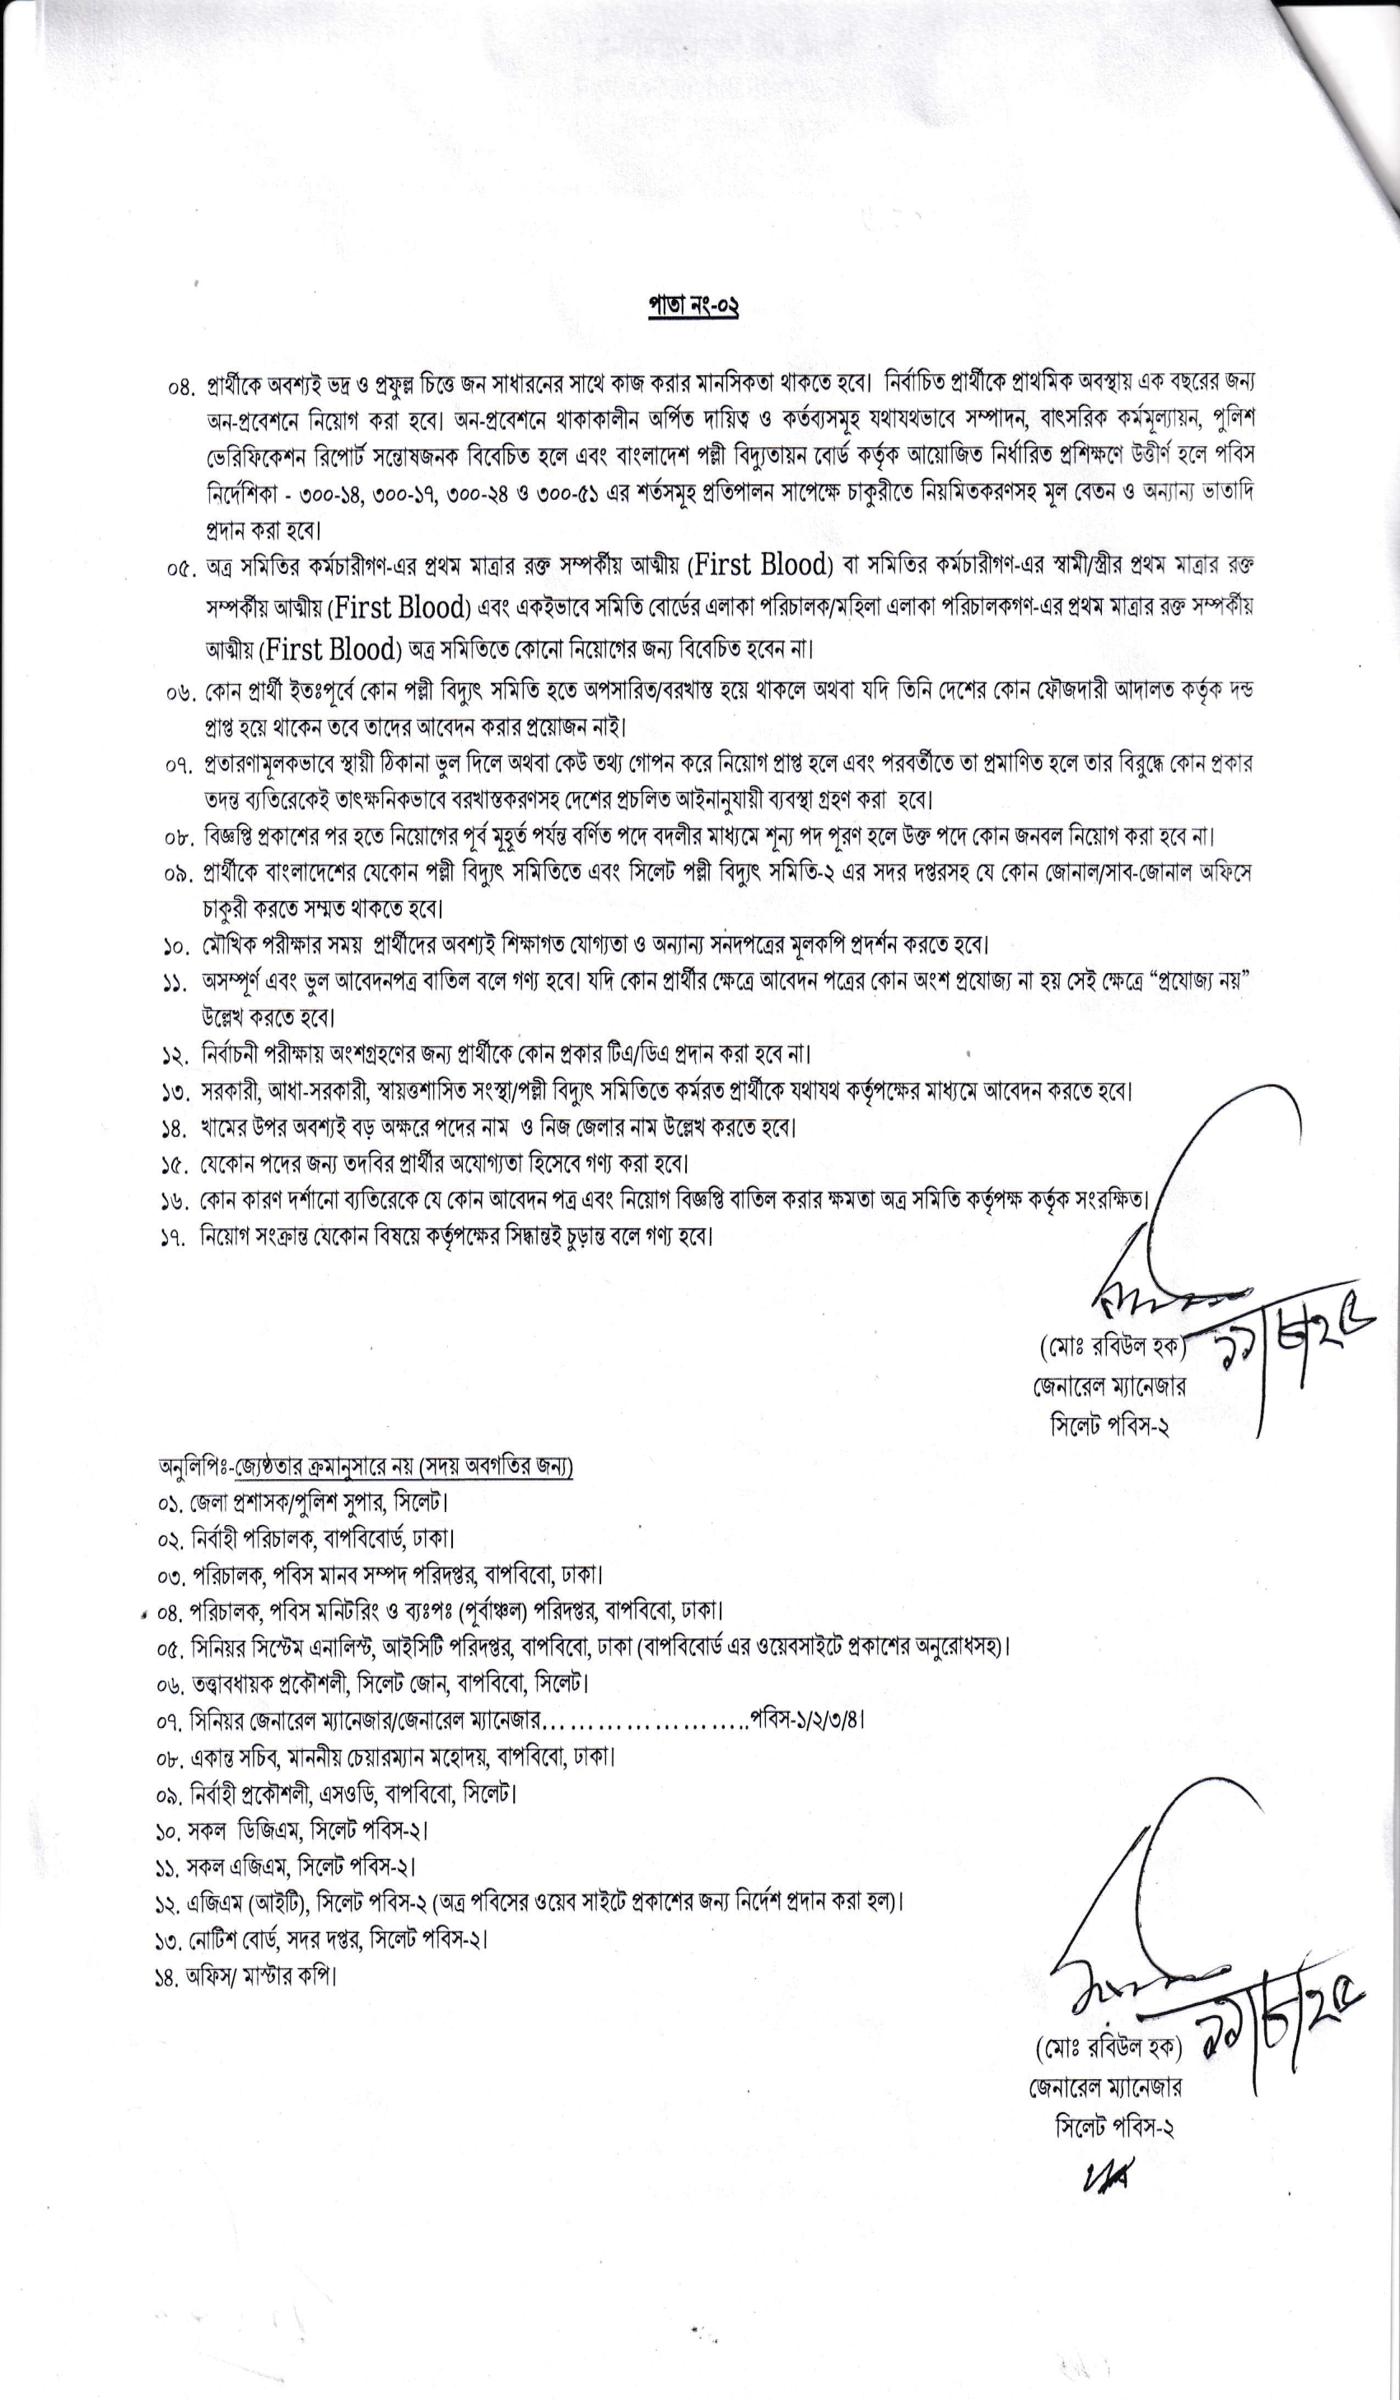 পাতা নং-০২
০৪. প্রার্থীকে অবশ্যই ভদ্র ও প্রফুল্ল চিত্তে জন সাধারনের সাথে কাজ করার মানসিকতা থাকতে হবে। নির্বাচিত প্রার্থীকে প্রাথমিক অবস্থায় এক বছরের জন্য
অন-প্রবেশনে নিয়োগ করা হবে। অন-প্রবেশনে থাকাকালীন অর্পিত দায়িত্ব ও কর্তব্যসমূহ যথাযথভাবে সম্পাদন, বাৎসরিক কর্মমূল্যায়ন, পুলিশ
ভেরিফিকেশন রিপোর্ট সন্তোষজনক বিবেচিত হলে এবং বাংলাদেশ পল্লী বিদ্যুতায়ন বোর্ড কর্তৃক আয়োজিত নির্ধারিত প্রশিক্ষণে উত্তীর্ণ হলে পবিস
নির্দেশিকা - ৩০০-১৪, ৩০০-১৭, ৩০০-২৪ ও ৩০০-৫১ এর শর্তসমূহ প্রতিপালন সাপেক্ষে চাকুরীতে নিয়মিতকরণসহ মূল বেতন ও অন্যান্য ভাতাদি
প্রদান করা হবে।
০৫. অত্র সমিতির কর্মচারীগণ-এর প্রথম মাত্রার রক্ত সম্পর্কীয় আত্মীয় (First Blood) বা সমিতির কর্মচারীগণ-এর স্বামী/স্ত্রীর প্রথম মাত্রার রক্ত
সম্পর্কীয় আত্মীয় (First Blood) এবং একইভাবে সমিতি বোর্ডের এলাকা পরিচালক/মহিলা এলাকা পরিচালকগণ-এর প্রথম মাত্রার রক্ত সম্পর্কীয়
আত্মীয় (First Blood) অত্র সমিতিতে কোনো নিয়োগের জন্য বিবেচিত হবেন না।
০৬. কোন প্রার্থী ইতঃপূর্বে কোন পল্লী বিদ্যুৎ সমিতি হতে অপসারিত/বরখাস্ত হয়ে থাকলে অথবা যদি তিনি দেশের কোন ফৌজদারী আদালত কর্তৃক দন্ড
প্রাপ্ত হয়ে থাকেন তবে তাদের আবেদন করার প্রয়োজন নাই।
০৭. প্রতারণামূলকভাবে স্থায়ী ঠিকানা ভুল দিলে অথবা কেউ তথ্য গোপন করে নিয়োগ প্রাপ্ত হলে এবং পরবর্তীতে তা প্রমাণিত হলে তার বিরুদ্ধে কোন প্রকার
তদন্ত ব্যতিরেকেই তাৎক্ষনিকভাবে বরখাস্তকরণসহ দেশের প্রচলিত আইনানুযায়ী ব্যবস্থা গ্রহণ করা হবে।
০৮. বিজ্ঞপ্তি প্রকাশের পর হতে নিয়োগের পূর্ব মূহূর্ত পর্যন্ত বর্ণিত পদে বদলীর মাধ্যমে শূন্য পদ পূরণ হলে উক্ত পদে কোন জনবল নিয়োগ করা হবে না।
০৯. প্রার্থীকে বাংলাদেশের যেকোন পল্লী বিদ্যুৎ সমিতিতে এবং সিলেট পল্লী বিদ্যুৎ সমিতি-২ এর সদর দপ্তরসহ যে কোন জোনাল/সাব-জোনাল অফিসে
চাকুরী করতে সম্মত থাকতে হবে।
১০. মৌখিক পরীক্ষার সময় প্রার্থীদের অবশ্যই শিক্ষাগত যোগ্যতা ও অন্যান্য সনদপত্রের মূলকপি প্রদর্শন করতে হবে।
১১. অসম্পূর্ণ এবং ভুল আবেদনপত্র বাতিল বলে গণ্য হবে। যদি কোন প্রার্থীর ক্ষেত্রে আবেদন পত্রের কোন অংশ প্রযোজ্য না হয় সেই ক্ষেত্রে “প্রযোজ্য নয়”
উল্লেখ করতে হবে।
১২. নির্বাচনী পরীক্ষায় অংশগ্রহণের জন্য প্রার্থীকে কোন প্রকার টিএ/ডিএ প্রদান করা হবে না।
১৩. সরকারী, আধা-সরকারী, স্বায়ত্তশাসিত সংস্থা/পল্লী বিদ্যুৎ সমিতিতে কর্মরত প্রার্থীকে যথাযথ কর্তৃপক্ষের মাধ্যমে আবেদন করতে হবে।
১৪. খামের উপর অবশ্যই বড় অক্ষরে পদের নাম ও নিজ জেলার নাম উল্লেখ করতে হবে।
১৫. যেকোন পদের জন্য তদবির প্রার্থীর অযোগ্যতা হিসেবে গণ্য করা হবে।
১৬. কোন কারণ দর্শানো ব্যতিরেকে যে কোন আবেদন পত্র এবং নিয়োগ বিজ্ঞপ্তি বাতিল করার ক্ষমতা অত্র সমিতি কর্তৃপক্ষ কর্তৃক সংরক্ষিত।
১৭. নিয়োগ সংক্রান্ত যেকোন বিষয়ে কর্তৃপক্ষের সিদ্ধান্তই চুড়ান্ত বলে গণ্য হবে।
(মোঃ রবিউল হক)
১১/৮/২৫
জেনারেল ম্যানেজার
সিলেট পবিস-২
অনুলিপিঃ-জ্যেষ্ঠতার ক্রমানুসারে নয় (সদয় অবগতির জন্য)
০১. জেলা প্রশাসক/পুলিশ সুপার, সিলেট।
০২. নির্বাহী পরিচালক, বাপবিবোর্ড, ঢাকা।
০৩. পরিচালক, পবিস মানব সম্পদ পরিদপ্তর, বাপবিবো, ঢাকা।
০৪. পরিচালক, পবিস মনিটরিং ও ব্যঃপঃ (পূর্বাঞ্চল) পরিদপ্তর, বাপবিবো, ঢাকা।
০৫. সিনিয়র সিস্টেম এনালিস্ট, আইসিটি পরিদপ্তর, বাপবিবো, ঢাকা (বাপবিবোর্ড এর ওয়েবসাইটে প্রকাশের অনুরোধসহ)।
০৬. তত্ত্বাবধায়ক প্রকৌশলী, সিলেট জোন, বাপবিবো, সিলেট।
০৭. সিনিয়র জেনারেল ম্যানেজার/জেনারেল ম্যানেজার.......................পবিস-১/২/৩/৪।
০৮. একান্ত সচিব, মাননীয় চেয়ারম্যান মহোদয়, বাপবিবো, ঢাকা।
০৯. নির্বাহী প্রকৌশলী, এসওডি, বাপবিবো, সিলেট।
১০. সকল ডিজিএম, সিলেট পবিস-২।
১১. সকল এজিএম, সিলেট পবিস-২।
১২. এজিএম (আইটি), সিলেট পবিস-২ (অত্র পবিসের ওয়েব সাইটে প্রকাশের জন্য নির্দেশ প্রদান করা হল)।
১৩. নোটিশ বোর্ড, সদর দপ্তর, সিলেট পবিস-২।
১৪. অফিস/ মাস্টার কপি।
১১/৮/২৫
(মোঃ রবিউল হক)
জেনারেল ম্যানেজার
সিলেট পবিস-২